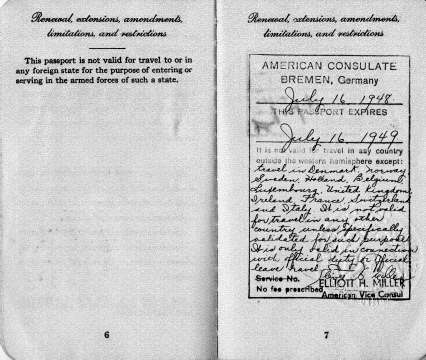 Renewal, extensions, amendments,
limitations, and restrictions
This passport is not valid for travel to or in
any foreign state for the purpose of entering or
serving in the armed forces of such a state.
6
Renewal, extensions, amendments,
limitations, and restrictions
AMERICAN CONSULATE
BREMEN, Germany
July 16, 1948
THIS PASSPORT EXPIRES
July 16, 1949
It is not valid for travel in any country
outside the western hemisphere except:
travel in Denmark, Norway
Sweden, Holland, Belgium,
Luxembourg, United Kingdom,
Ireland, France, Switzerland
and Italy. It is not valid
for travel in any other
country unless specifically
validated for such purpose.
It is only valid in connection
with official duty or official
leave travel.
Service No.
No fee prescribed
ELLIOTT H. MILLER
American Vice Consul
7